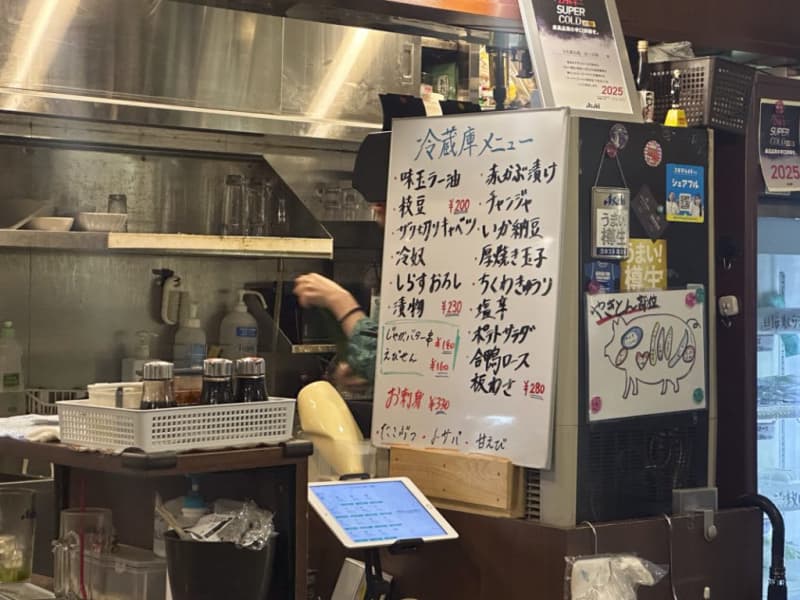 SUPER
COLD
2025
冷蔵庫メニュー
・味玉ラー油
・枝豆 ¥200
・ザク切りキャベツ
・冷奴
・しらすおろし
・漬物 ¥230
じゃがバター串 ¥180
えびせん ¥160
お刺身 ¥330
・たこぶつ ・〆サバ ・甘えび
・赤かぶ漬け
・チャンジャ
・いか納豆
・厚焼き玉子
・ちくわきゅうり
・塩辛
・ポテトサラダ
・合鴨ロース
・板わさ ¥280
シェアフル
うまい!
樽生
うまい!
樽生
やきとん部位
SUPER
COLD
2025